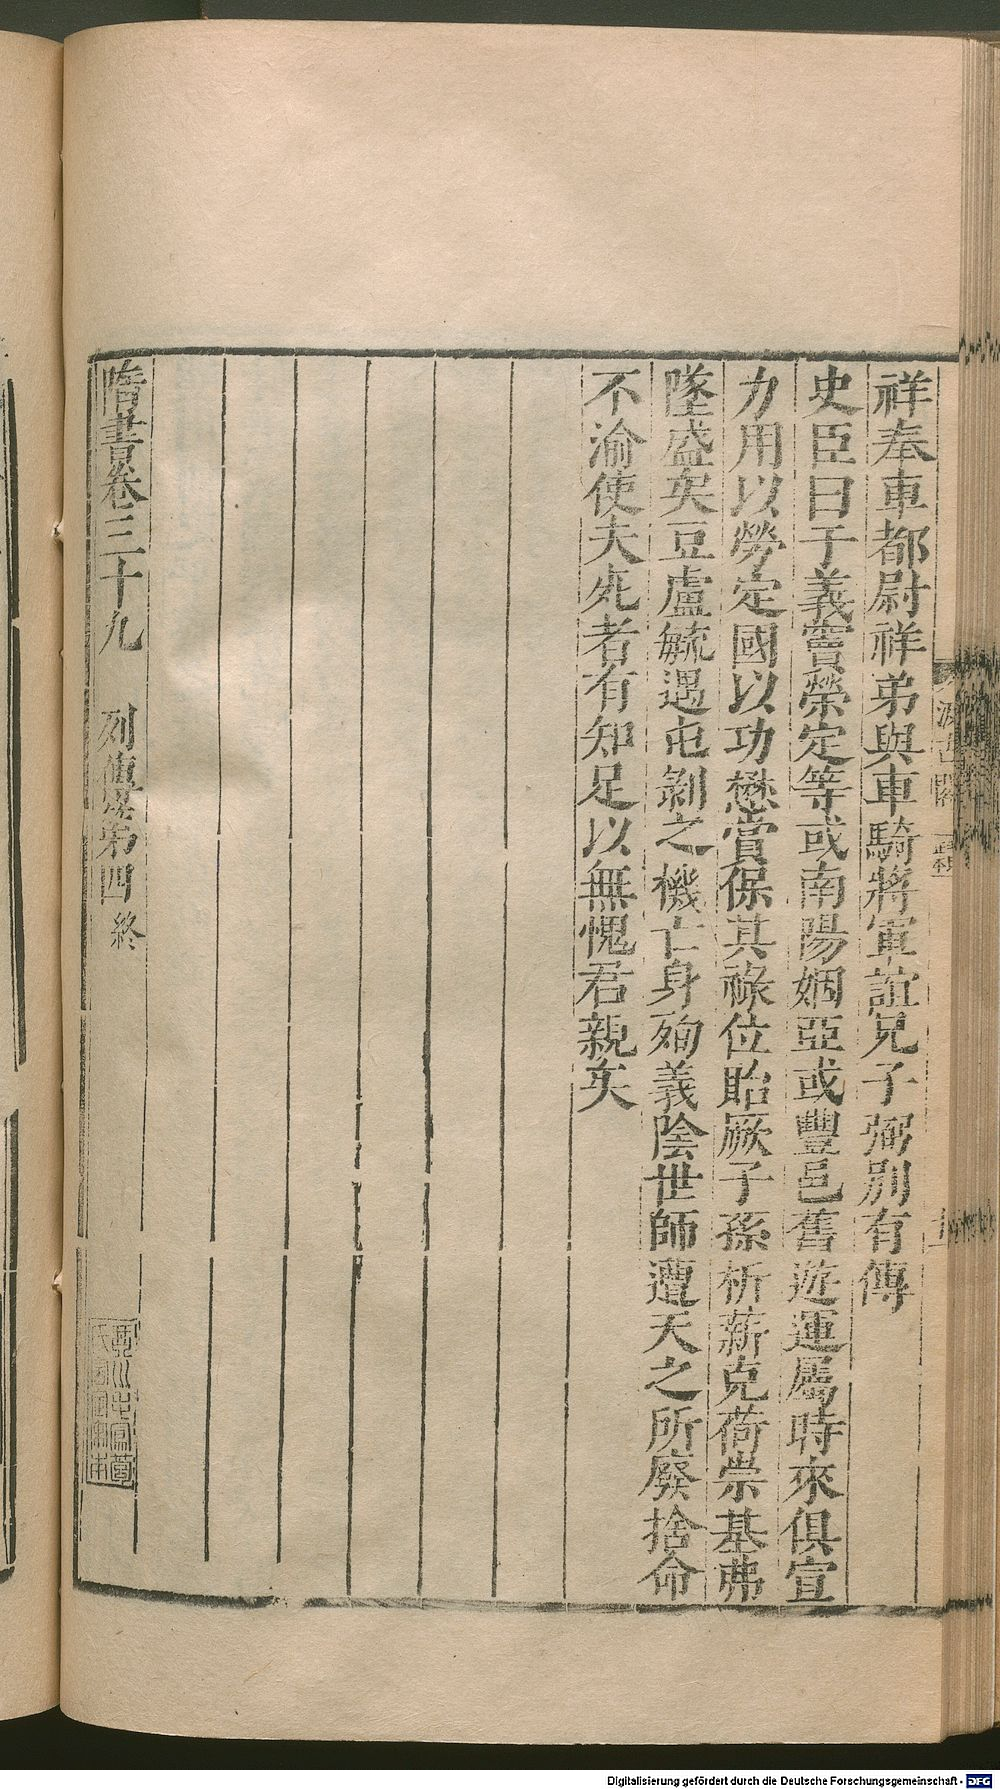 祥奉車都尉祥弟與車騎將軍誼兄子弼別有傳
史臣曰于義竇榮定等或南陽姻亞或豐邑舊遊運屬時來俱宣
力用以勞定國以功懋賞保其祿位貽厥子孫析薪克荷崇基弗
墜盛矣豆盧毓遇屯剝之機亡身殉義陰世師遭天之所廢捨命
不渝使夫死者有知足以無愧君親矣
隋書卷三十九 列傳第四終
Digitalisierung gefördert durch die Deutsche Forschungsgemeinschaft - DFG